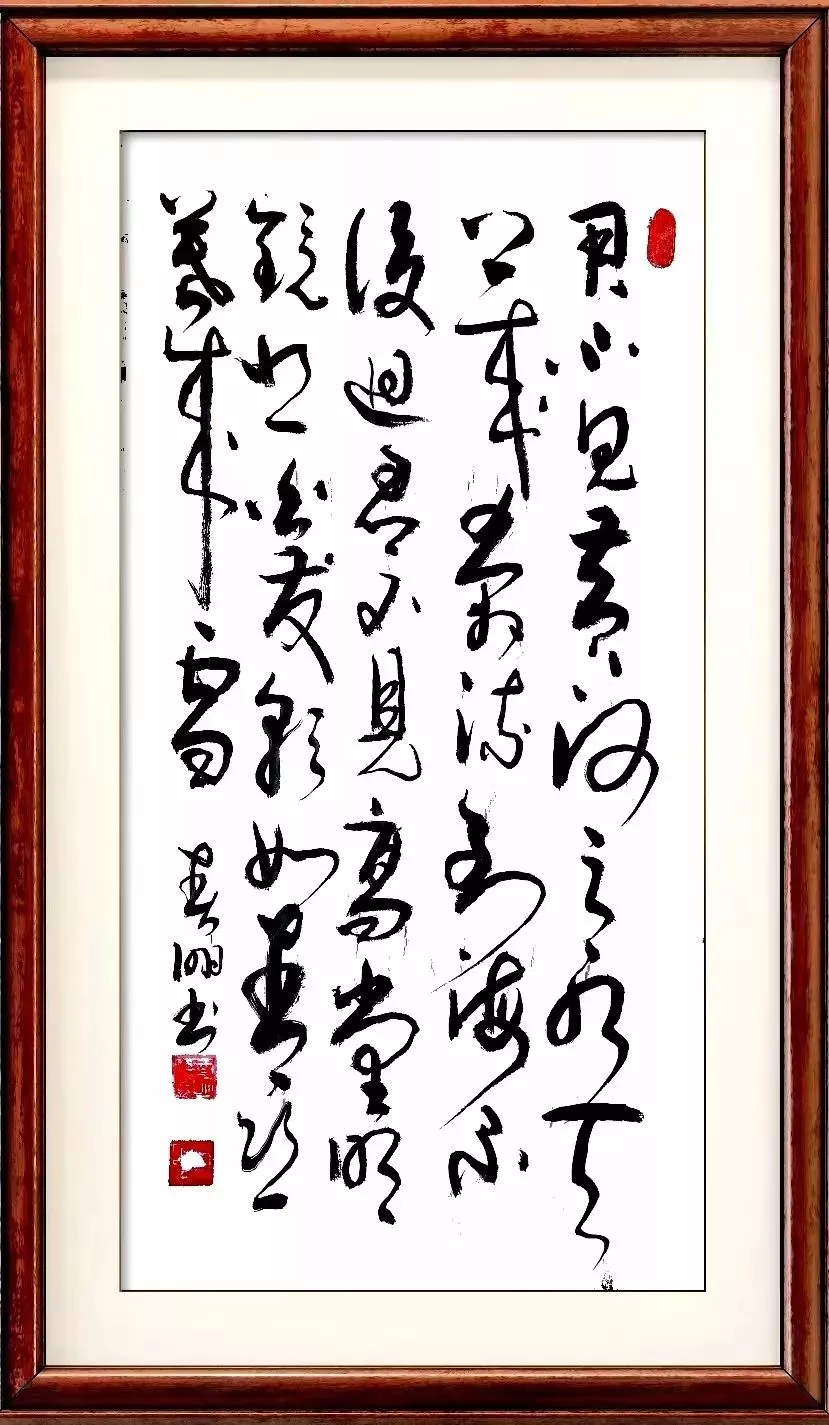 君不見黄河之水天
上来奔流到海不
復迴君不見高堂明
鏡悲白发朝如青丝
暮成雪
书